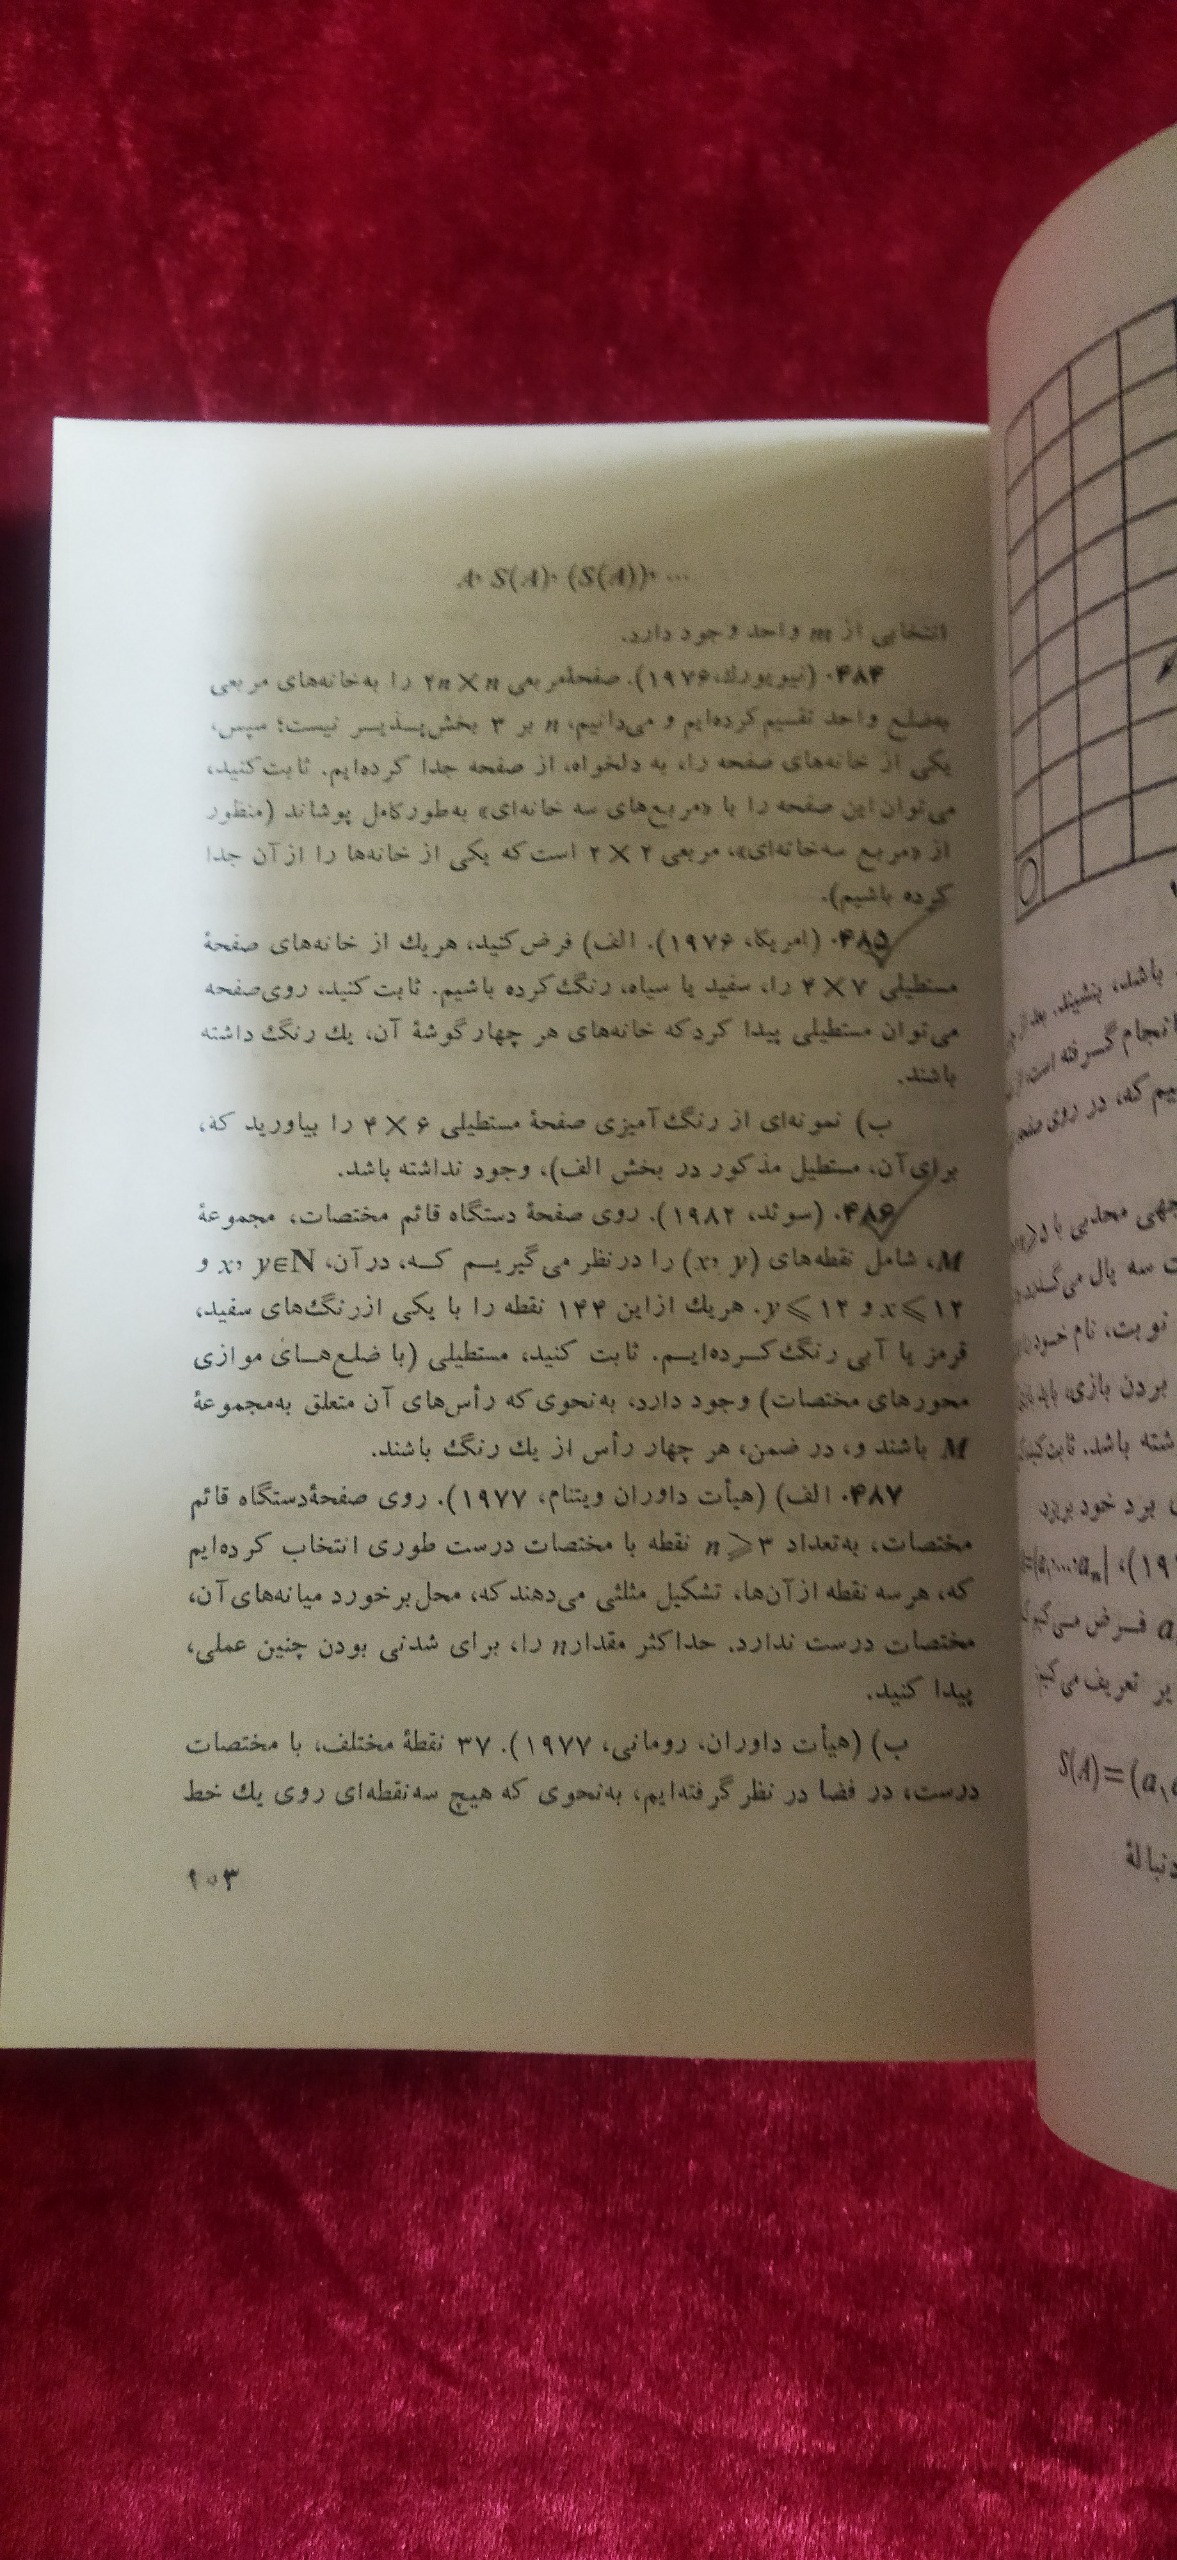 A، S(A)، (S(A))، ...
انتخابی از m واحد وجود دارد.
۴۸۴. (نیویورك، ۱۹۷۶). صفحهٔ مربعی ۲n×n را به خانه‌های مربعی
به‌ضلع واحد تقسیم کرده‌ایم و می‌دانیم، n بر ۳ بخش‌پذیر نیست؛ سپس،
یکی از خانه‌های صفحه را، به دلخواه، از صفحه جدا کرده‌ایم. ثابت کنید،
می‌توان این صفحه را با «مربع‌های سه خانه‌ای» به‌طور کامل پوشاند (منظور
از «مربع سه‌خانه‌ای»، مربعی ۲×۲ است که یکی از خانه‌ها را از آن جدا
کرده باشیم).
۴۸۵. (امریکا، ۱۹۷۶). الف) فرض کنید، هریك از خانه‌های صفحهٔ
مستطیلی ۴×۷ را، سفید یا سیاه، رنگ کرده باشیم. ثابت کنید، روی صفحه
می‌توان مستطیلی پیدا کرد که خانه‌های هر چهار گوشهٔ آن، یك رنگ داشته
باشند.
ب) نمونه‌ای از رنگ‌آمیزی صفحهٔ مستطیلی ۴×۶ را بیاورید که،
برای آن، مستطیل مذکور در بخش الف)، وجود نداشته باشد.
۴۸۶. (سوئد، ۱۹۸۲). روی صفحهٔ دستگاه قائم مختصات، مجموعهٔ
M، شامل نقطه‌های (x، y) را درنظر می‌گیریم که، در آن، x، y∈N و
x⩽۱۲ و y⩽۱۲. هریك از این ۱۴۴ نقطه را با یکی از رنگ‌های سفید،
قرمز یا آبی رنگ کرده‌ایم. ثابت کنید، مستطیلی (با ضلع‌های موازی
محورهای مختصات) وجود دارد، به‌نحوی که رأس‌های آن متعلق به‌مجموعهٔ
M باشند و، در ضمن، هر چهار رأس از یك رنگ باشند.
۴۸۷. الف) (هیأت داوران ویتنام، ۱۹۷۷). روی صفحهٔ دستگاه قائم
مختصات، به‌تعداد n⩾۳ نقطه با مختصات درست طوری انتخاب کرده‌ایم
که، هر سه نقطه از آن‌ها، تشکیل مثلثی می‌دهند که، محل برخورد میانه‌های آن،
مختصات درست ندارد. حداکثر مقدار n را، برای شدنی بودن چنین عملی،
پیدا کنید.
ب) (هیأت داوران، رومانی، ۱۹۷۷). ۳۷ نقطهٔ مختلف، با مختصات
درست، در فضا در نظر گرفته‌ایم، به‌نحوی که هیچ سه‌نقطه‌ای روی یك خط
۱۰۳
باشد، بنشیند. بعد از
انجام گرفته است، از
که، در روی صفحه
جهی محدبی با
سه یال می‌گذرد
نوبت، نام خود را
بردن بازی، باید
شته باشد. ثابت کنید
برد خود بریزد
فرض می‌کنیم
یر تعریف می‌کنیم
S(A)=(a₁
دنبالهٔ